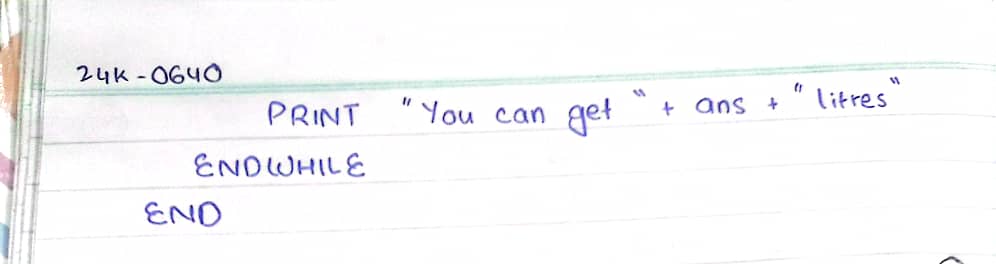 24K-0640
PRINT "You can get" + ans + "litres"
ENDWHILE
END